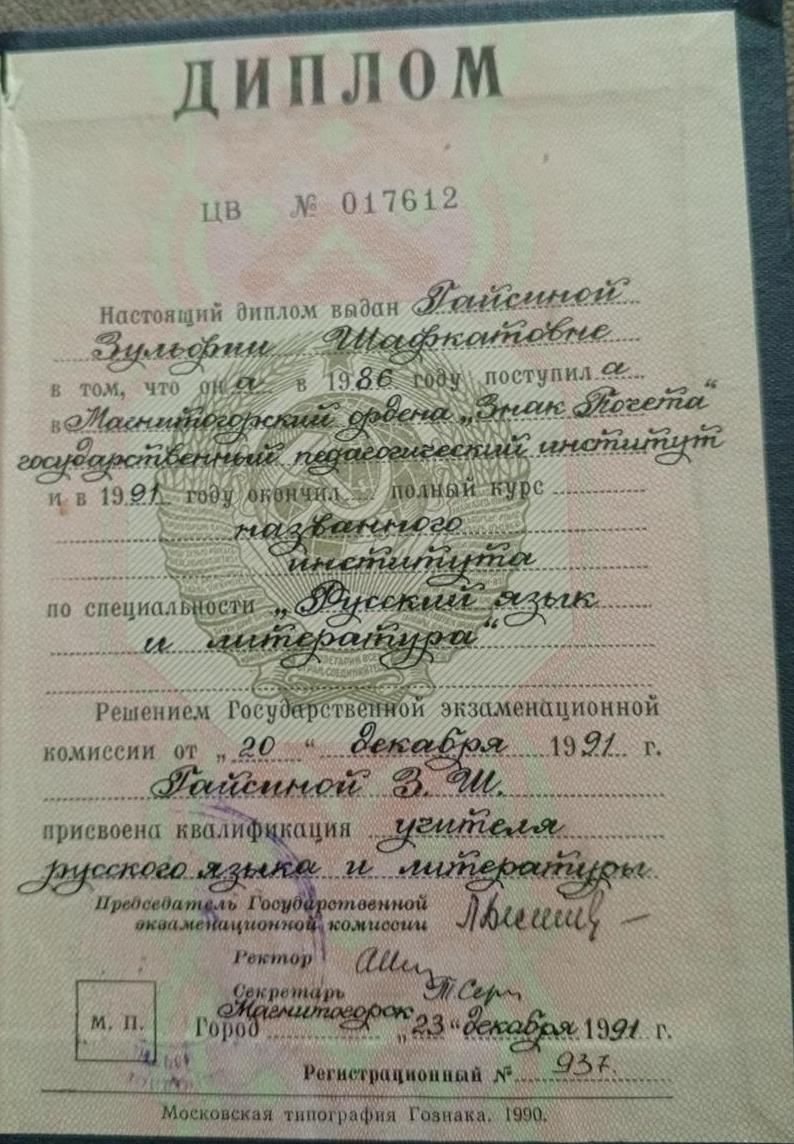 ДИПЛОМ
ЦВ № 017612
Настоящий диплом выдан Гайсиной
Зульфии Шафкатовне
в том, что она в 1986 году поступила
в Магнитогорский ордена „Знак Почета“
государственный педагогический институт
и в 1991 году окончил полный курс
названного
института
по специальности „Русский язык
и литература“
Решением Государственной экзаменационной
комиссии от „20“ декабря 1991 г.
Гайсиной З. Ш.
присвоена квалификация учителя
русского языка и литературы
Председатель Государственной
экзаменационной комиссии
Ректор
Секретарь
Магнитогорск
М. П. Город „23“ декабря 1991 г.
Регистрационный № 937.
Московская типография Гознака. 1990.